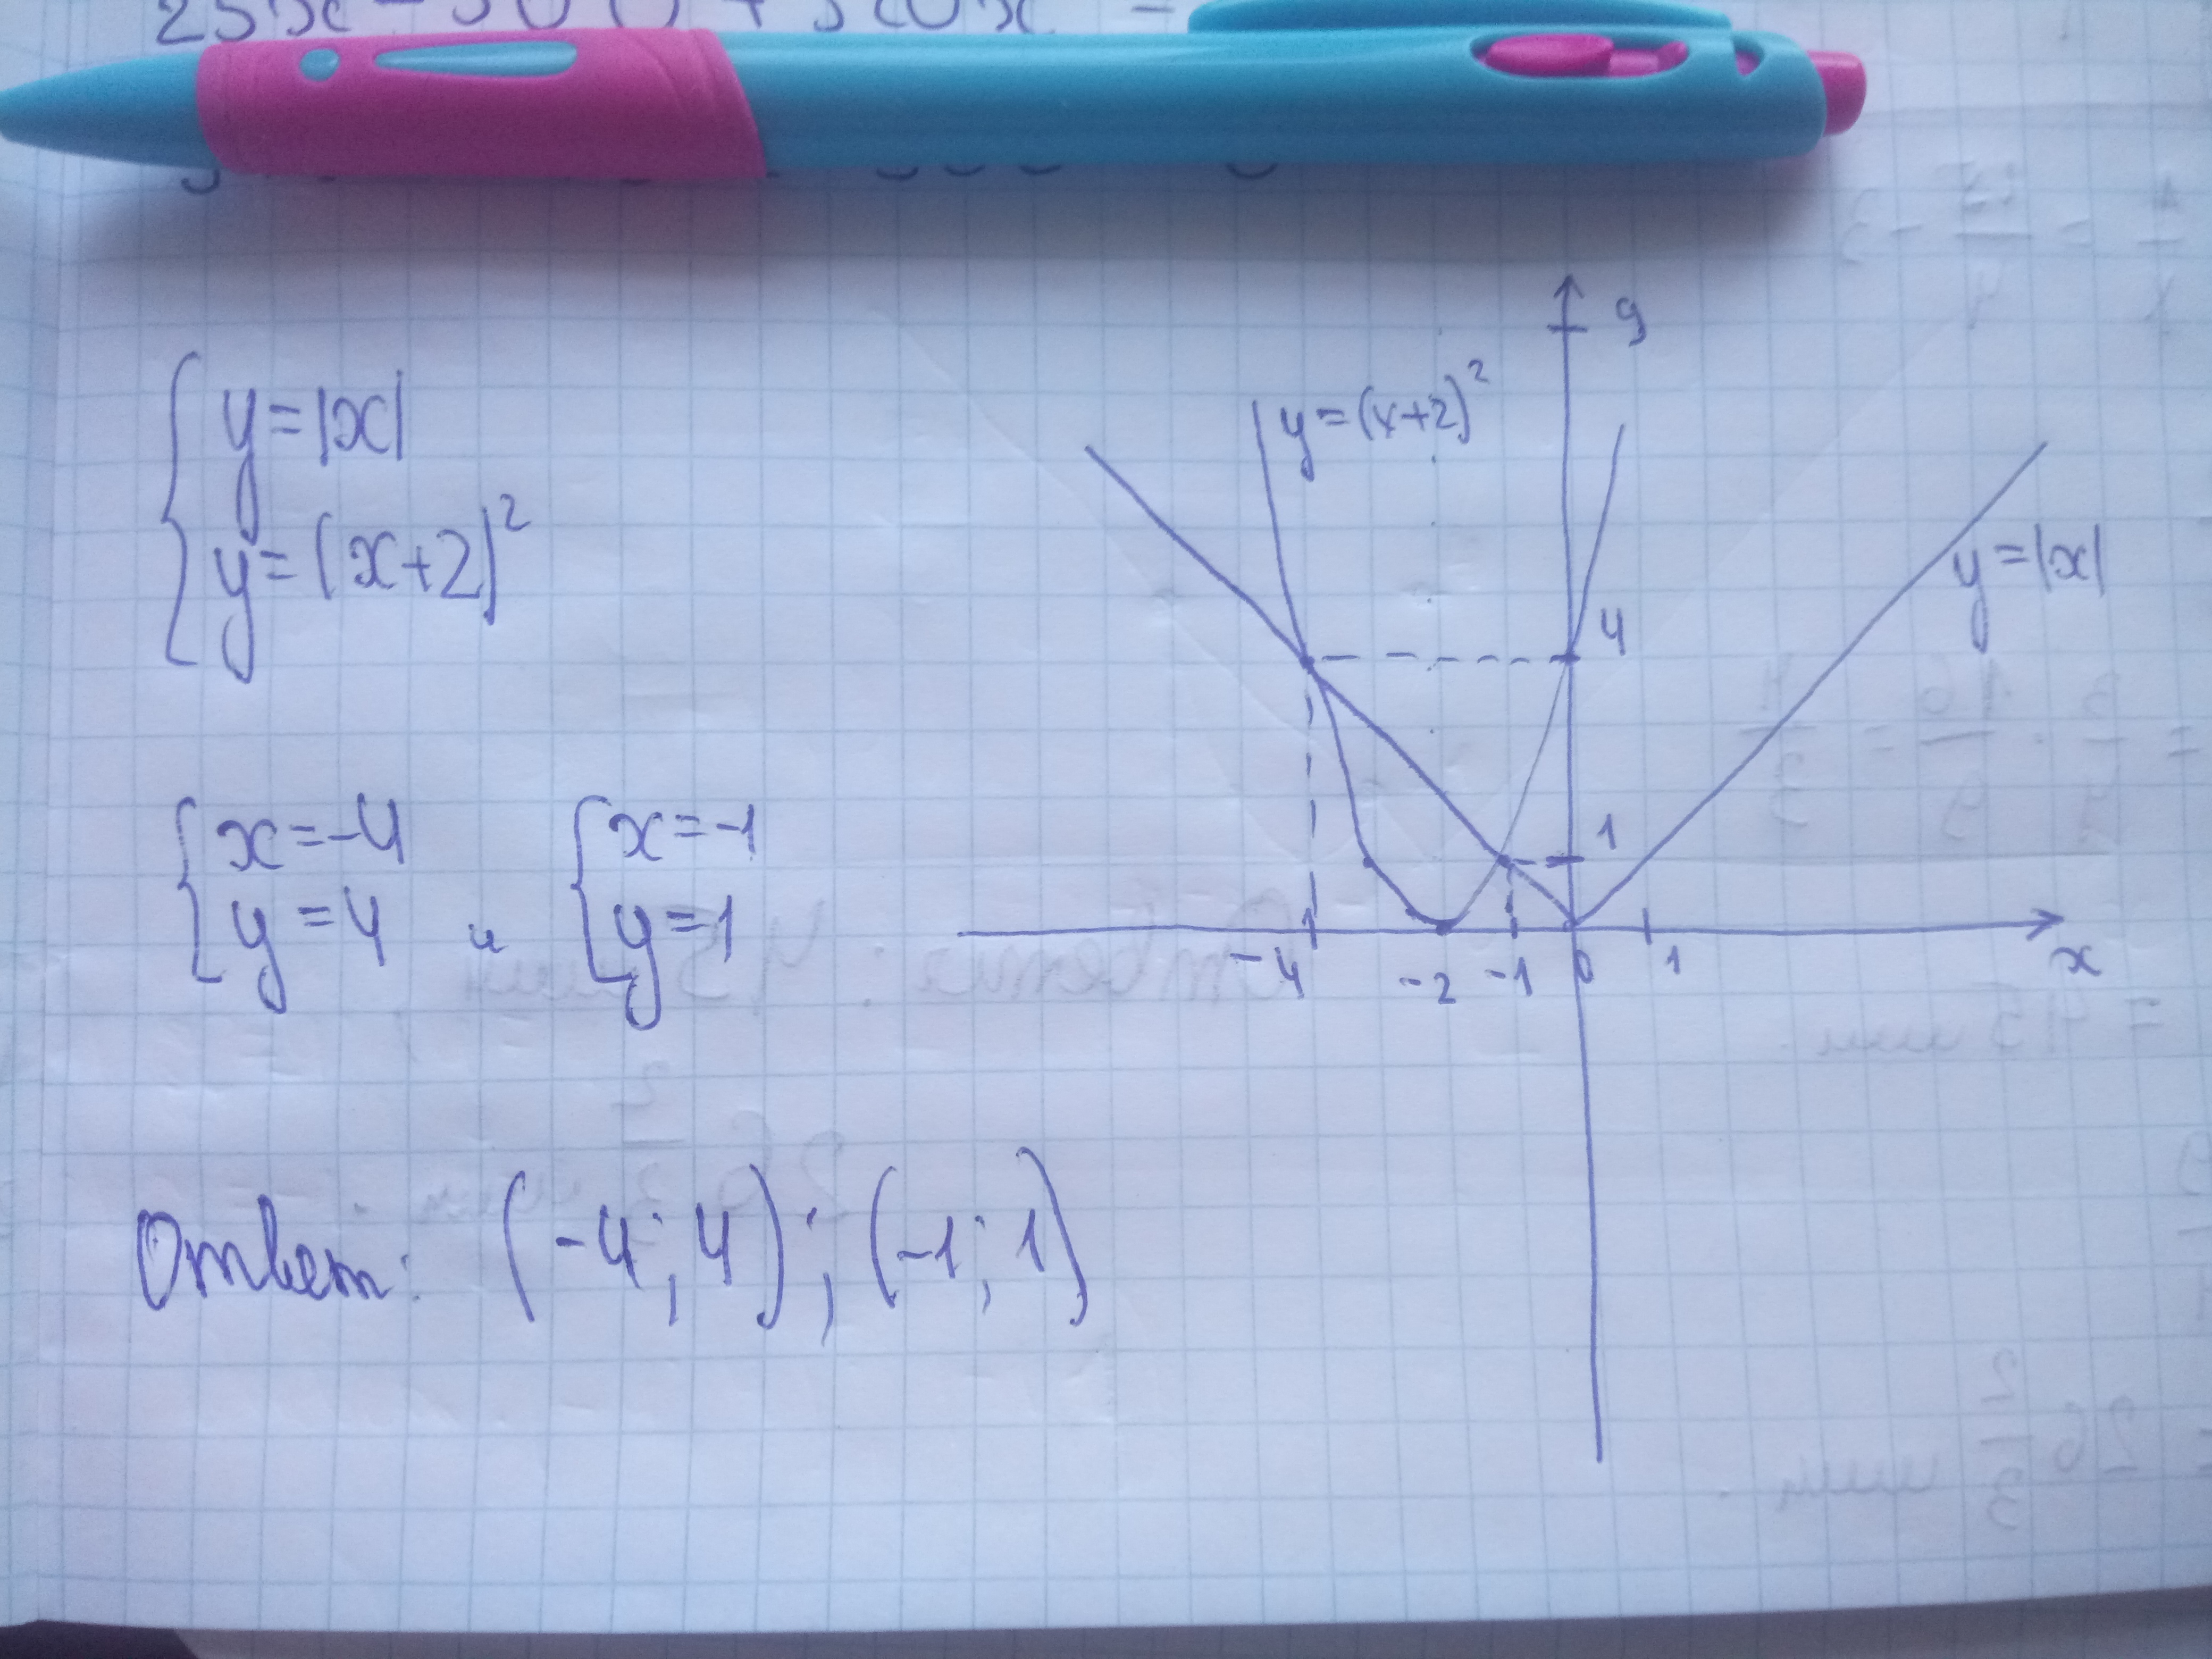 y=|x|
y=(x+2)²
x=-4
y=4
и
x=-1
y=1
Ответ: (-4; 4); (-1; 1)
y
y=(x+2)²
y=|x|
4
1
-4 -2 -1 0 1 x